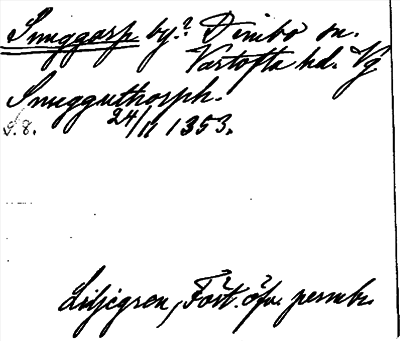 Snuggarp by? Dimbo sn.
Vartofta hd. Vg
Snugguthorph.
S. 8. 24/11 1353.
Liljegren, Fört. öfv. permbr.